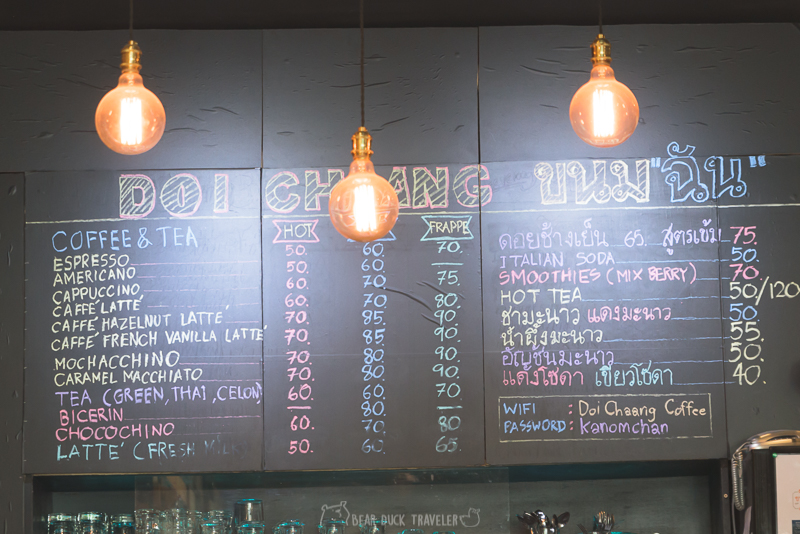 DOI CHAANG ขนม "ฉัน"
COFFEE & TEA HOT FRAPPE
ESPRESSO 50. 60. 70.
AMERICANO 50. 60. —
CAPPUCCINO 60. 70 75.
CAFFÉ LATTÉ 60. 70 80.
CAFFÉ HAZELNUT LATTÉ 70. 85 90.
CAFFÉ FRENCH VANILLA LATTÉ 70. 85 90.
MOCHACCHINO 70. 80 90.
CARAMEL MACCHIATO 70. 80 90.
TEA (GREEN, THAI, CELON) 60. 70 70
BICERIN — 80. —
CHOCOCHINO 60. 70 80
LATTÉ (FRESH MILK 50. 60. 65.
ดอยช้างเย็น 65. สูตรเข้ม 75.
ITALIAN SODA 50.
SMOOTHIES (MIX BERRY) 70.
HOT TEA 50/120
ชามะนาว แดงมะนาว 50.
น้ำผึ้งมะนาว 55.
อัญชันมะนาว 50.
แดงโซดา เขียวโซดา 40.
WIFI : Doi Chaang Coffee
PASSWORD : Kanomchan
BEAR DUCK TRAVELER